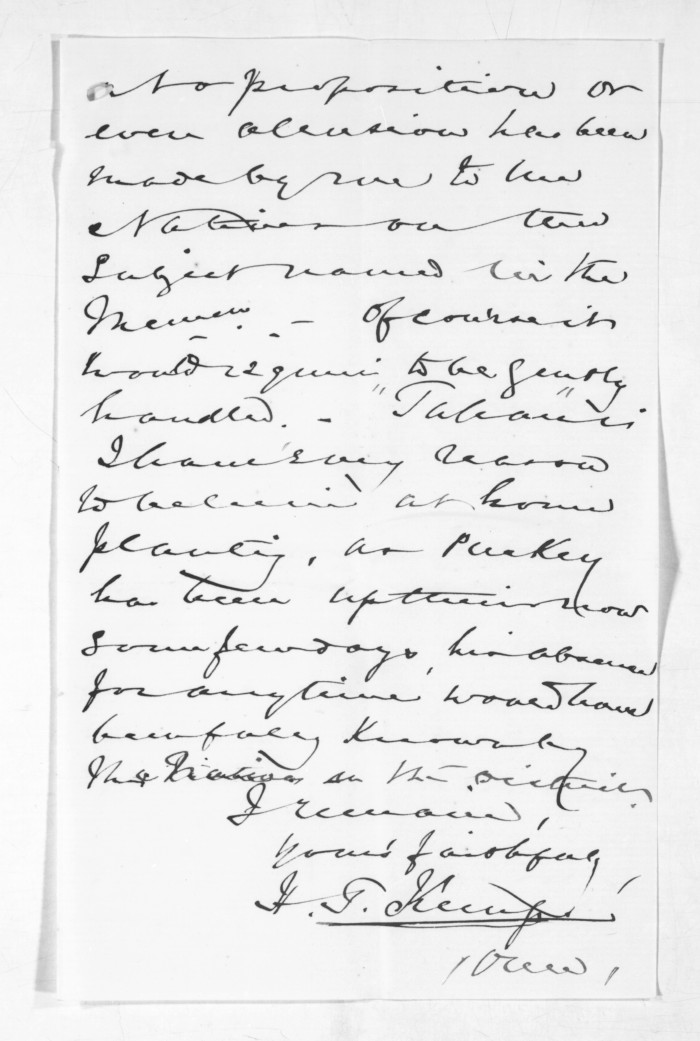 No proposition or
even allusion has been
made by me to the
Natives on the
subject named in the
Memn. - Of course it
would require to be gently
handled. - "Tahau" is
I have every reason
to believe at home
planting, as Puckey
has been up there now
some few days, his absence
for any time, would have
been fully known by
the Natives in the district.
I remain,
Yours faithfully,
H. T. Kemp
(Over)